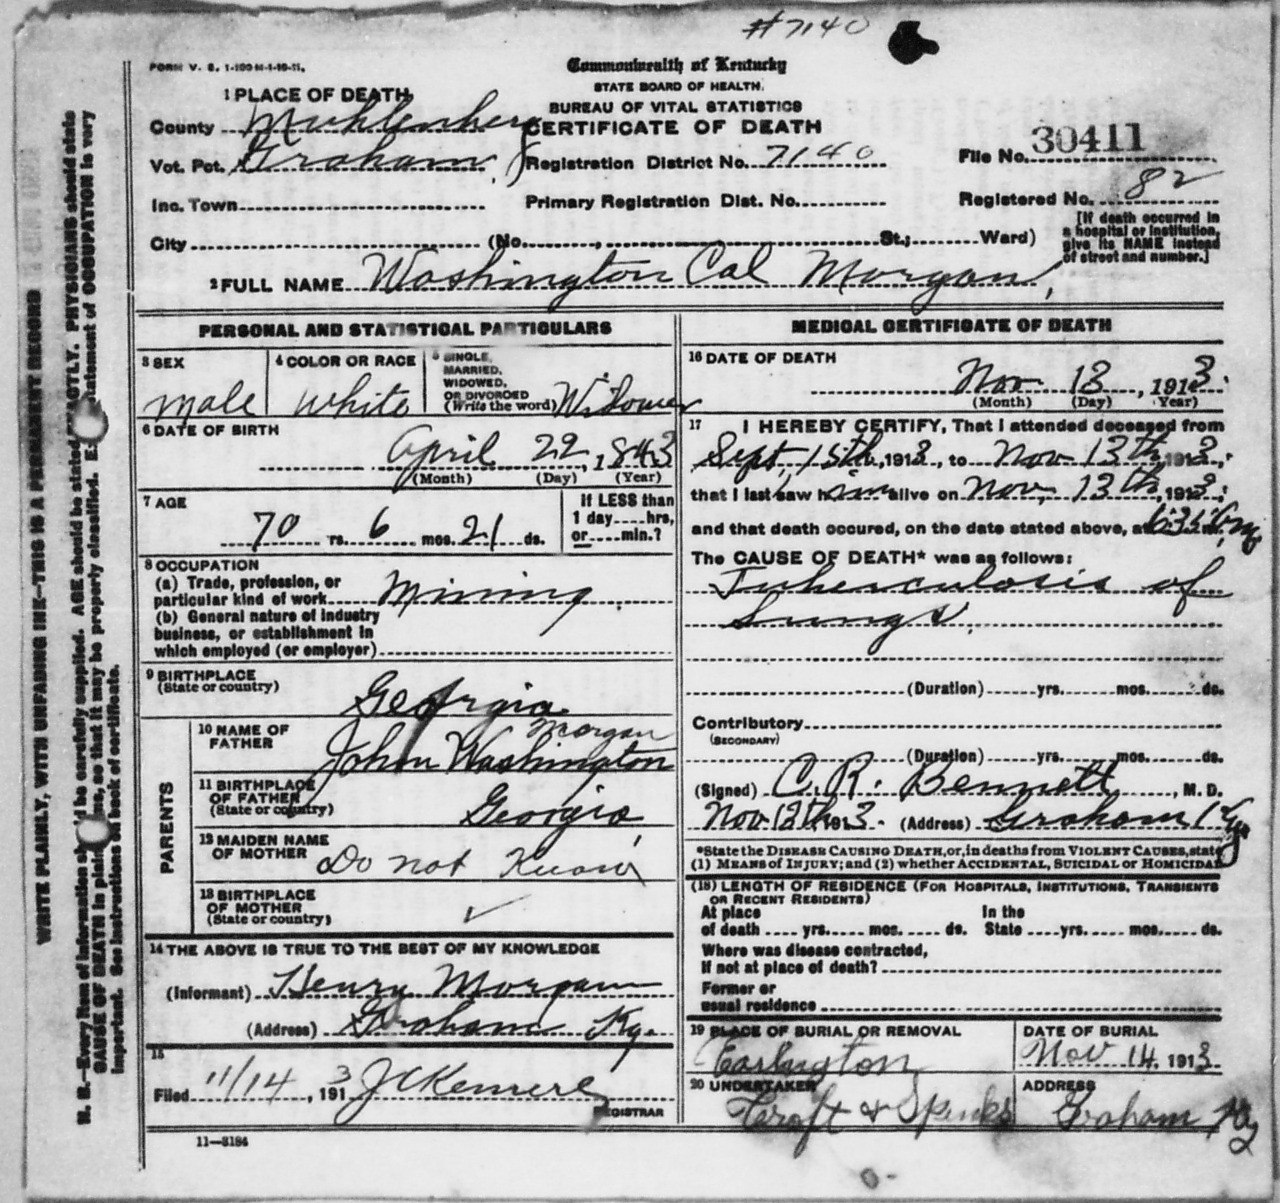 #7140
FORM V. S. 1-100 M-1-10-11.
Commonwealth of Kentucky
STATE BOARD OF HEALTH.
BUREAU OF VITAL STATISTICS
CERTIFICATE OF DEATH
1 PLACE OF DEATH
County Muhlenberg
Vot. Pct. Graham,
Registration District No. 7140
File No. 30411
Inc. Town
Primary Registration Dist. No.
Registered No. 82
City (No. , St.; Ward)
[If death occurred in
a hospital or institution,
give its NAME instead
of street and number.]
2 FULL NAME Washington Cal Morgan,
PERSONAL AND STATISTICAL PARTICULARS
3 SEX
male
4 COLOR OR RACE
white
5 SINGLE,
MARRIED,
WIDOWED,
OR DIVORCED
(Write the word) Widower
6 DATE OF BIRTH
April 22, 1843
(Month) (Day) (Year)
7 AGE
70 yrs. 6 mos. 21 ds.
If LESS than
1 day hrs,
or min.?
8 OCCUPATION
(a) Trade, profession, or
particular kind of work Mining
(b) General nature of industry
business, or establishment in
which employed (or employer)
9 BIRTHPLACE
(State or country)
Georgia
PARENTS
10 NAME OF
FATHER
Morgan
John Washington
11 BIRTHPLACE
OF FATHER
(State or country)
Georgia,
12 MAIDEN NAME
OF MOTHER
Do not Know
13 BIRTHPLACE
OF MOTHER
(State or country)
✓
14 THE ABOVE IS TRUE TO THE BEST OF MY KNOWLEDGE
(Informant) Henry Morgan
(Address) Graham Ky.
15
Filed 11/14, 1913
REGISTRAR
11—3184
MEDICAL CERTIFICATE OF DEATH
16 DATE OF DEATH
Nov 13, 1913.
(Month) (Day) (Year)
17 I HEREBY CERTIFY, That I attended deceased from
Sept, 15th, 1913, to Nov 13th, 1913,
that I last saw him alive on Nov, 13th, 1913,
and that death occured, on the date stated above, at
The CAUSE OF DEATH* was as follows:
Tuberculosis of
Lungs.
(Duration) yrs. mos. ds.
Contributory
(SECONDARY)
(Duration) yrs. mos. ds.
(Signed) C. R. Bennett, M. D.
Nov 13th 1913. (Address) Graham, Ky
*State the DISEASE CAUSING DEATH, or, in deaths from VIOLENT CAUSES, state
(1) MEANS of INJURY; and (2) whether ACCIDENTAL, SUICIDAL or HOMICIDAL
(18) LENGTH OF RESIDENCE (FOR HOSPITALS, INSTITUTIONS, TRANSIENTS
OR RECENT RESIDENTS)
At place In the
of death yrs. mos. ds. State yrs. mos. ds.
Where was disease contracted,
If not at place of death?
Former or
usual residence
19 PLACE OF BURIAL OR REMOVAL
Earlington
DATE OF BURIAL
Nov 14, 1913
20 UNDERTAKER
Croft & Spinks
ADDRESS
Graham Ky
WRITE PLAINLY, WITH UNFADING INK—THIS IS A PERMANENT RECORD
N. B.—Every item of information should be carefully supplied. AGE should be stated EXACTLY. PHYSICIANS should state
CAUSE OF DEATH in plain terms, so that it may be properly classified. Exact statement of OCCUPATION is very
important. See instructions on back of certificate.